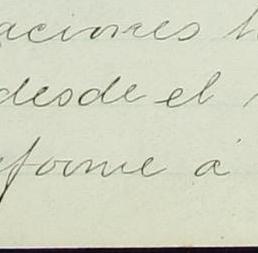 aciones
desde el
forme á